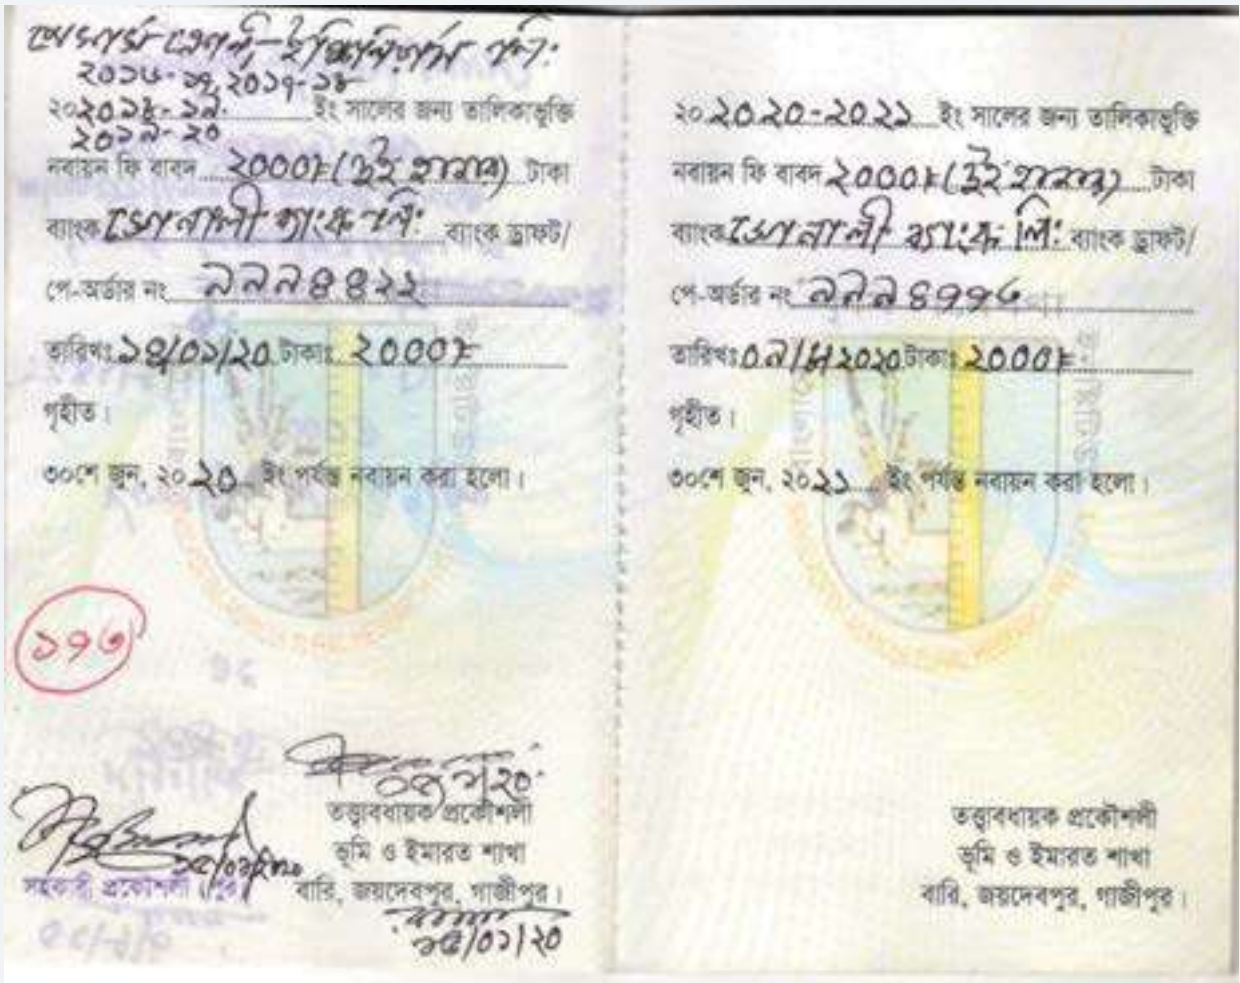 মেসার্স
২০১৬-১৭, ২০১৭-১৮
২০২০১৮-১৯. ইং সালের জন্য তালিকাভুক্তি
২০১৯-২০
নবায়ন ফি বাবদ ২০০০৲ (দুই হাজার) টাকা
ব্যাংক সোনালী ব্যাংক লি: ব্যাংক ড্রাফট/
পে-অর্ডার নং ৯৯৯৪৪২২
তারিখঃ ১৪/০১/২০ টাকাঃ ২০০০৲
গৃহীত।
৩০শে জুন, ২০২০ ইং পর্যন্ত নবায়ন করা হলো।
১৭৩
তত্ত্বাবধায়ক প্রকৌশলী
ভূমি ও ইমারত শাখা
বারি, জয়দেবপুর, গাজীপুর।
সহকারী প্রকৌশলী (পুর)
১৫/০১/২০
২০২০২০-২০২১ ইং সালের জন্য তালিকাভুক্তি
নবায়ন ফি বাবদ ২০০০৲ (দুই হাজার) টাকা
ব্যাংক সোনালী ব্যাংক লি: ব্যাংক ড্রাফট/
পে-অর্ডার নং ৯৯৯৪৭৭৬
তারিখঃ ০৯/৮/২০২০ টাকাঃ ২০০০৲
গৃহীত।
৩০শে জুন, ২০২১ ইং পর্যন্ত নবায়ন করা হলো।
তত্ত্বাবধায়ক প্রকৌশলী
ভূমি ও ইমারত শাখা
বারি, জয়দেবপুর, গাজীপুর।